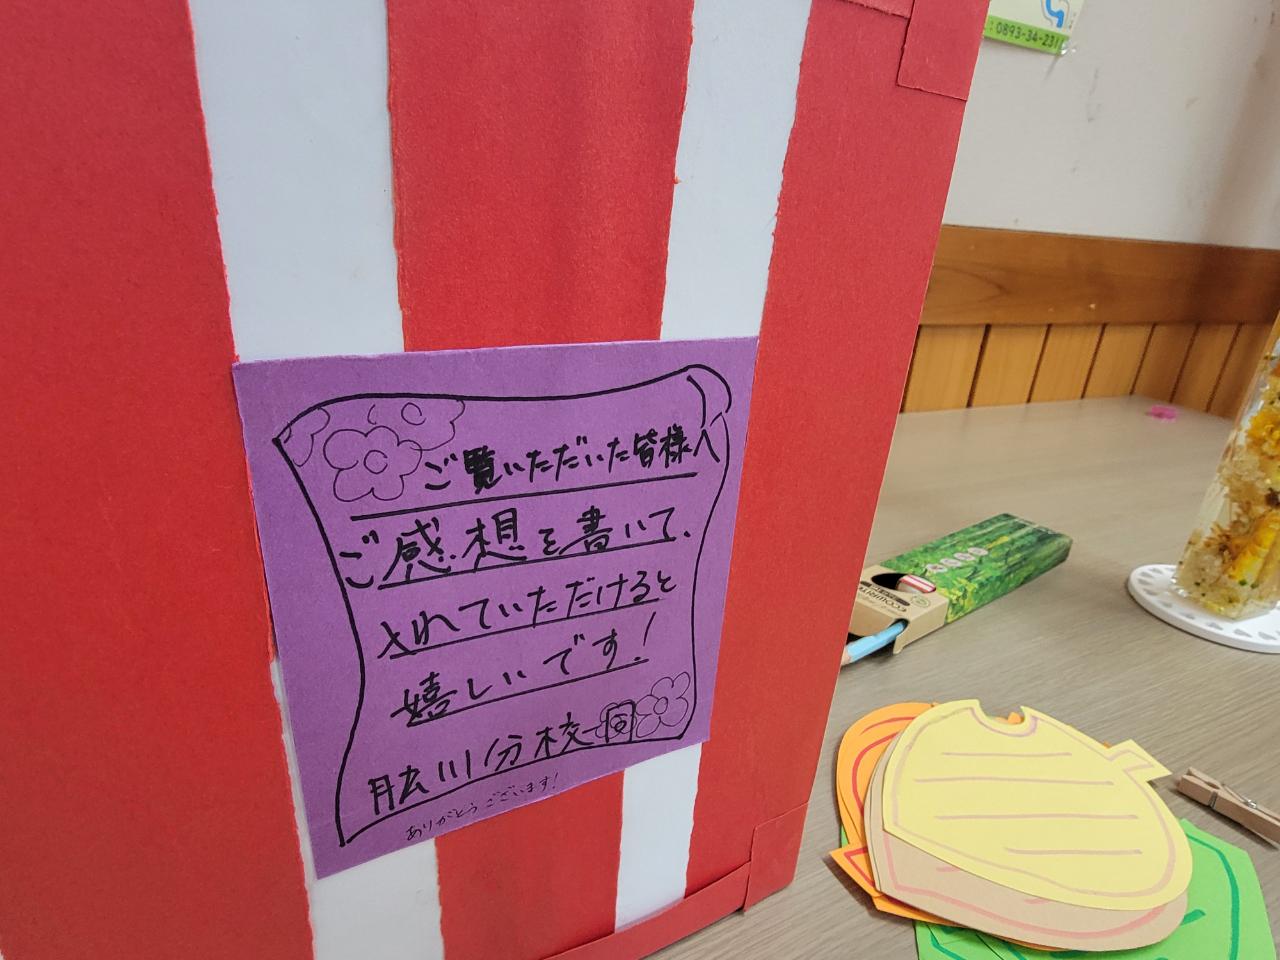 : 0893-34-231
ご覧いただいた皆様へ
ご感想を書いて、
入れていただけると
嬉しいです!
肱川分校一同
ありがとうございます!